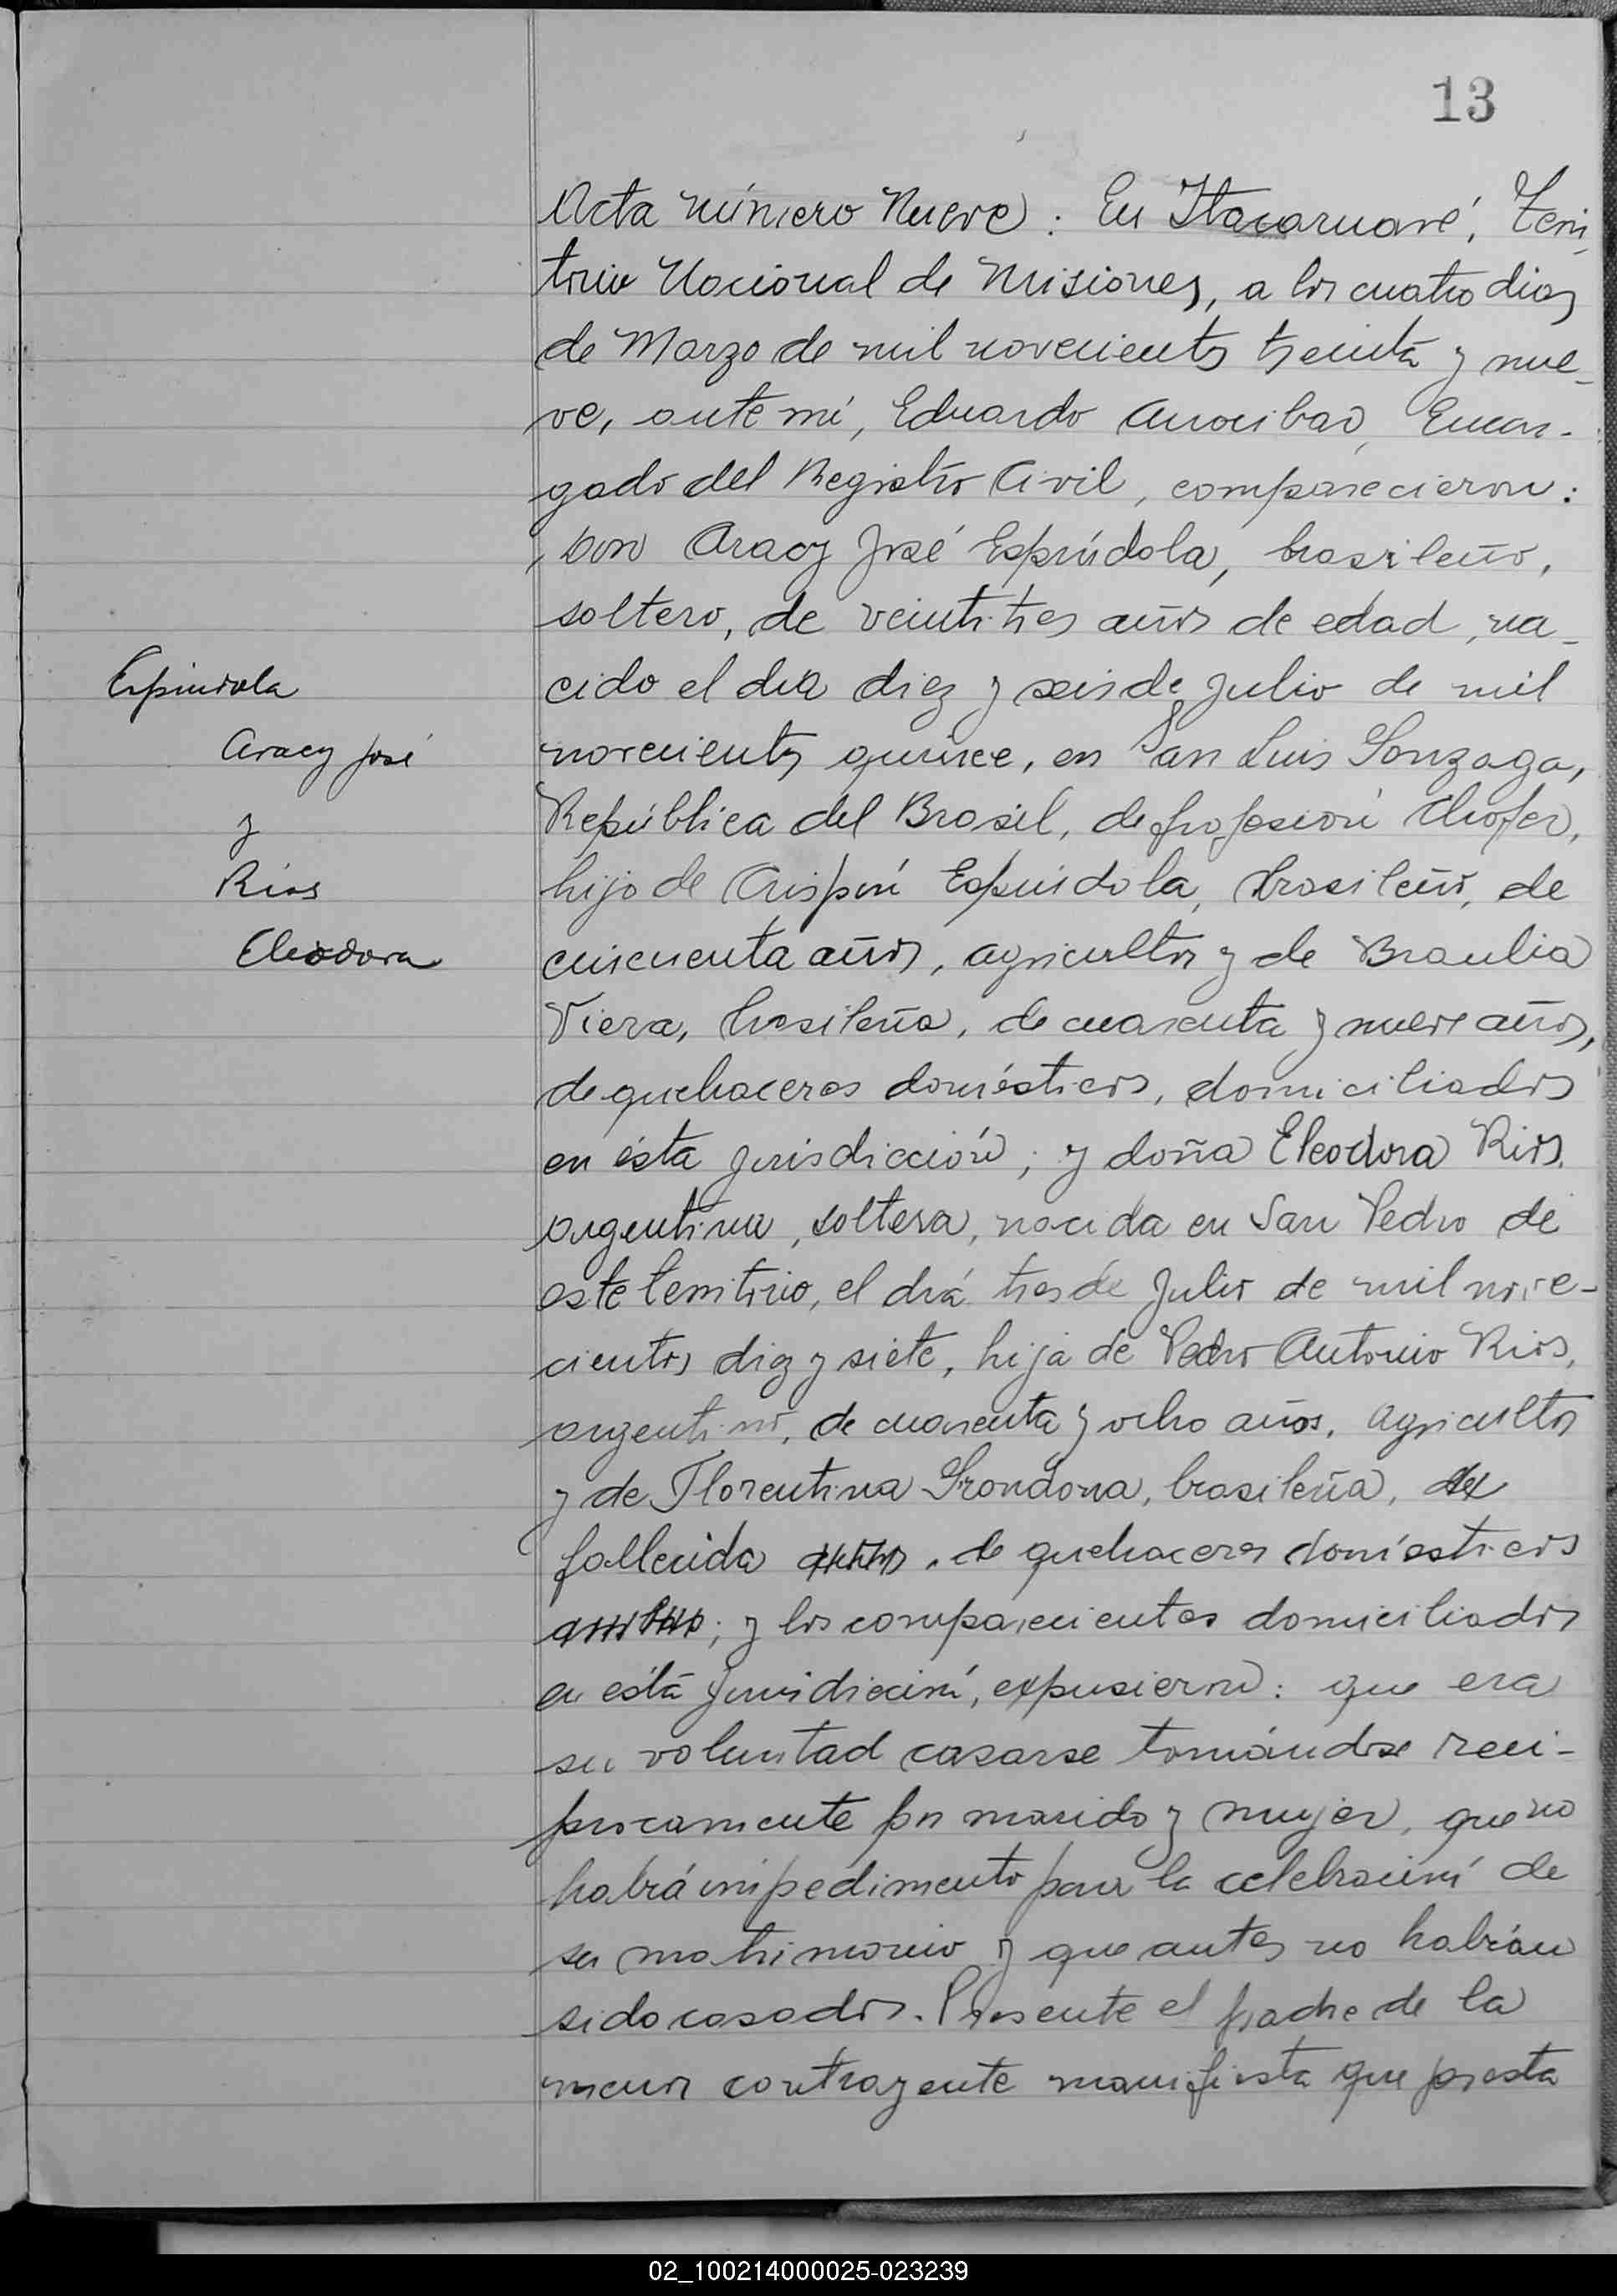 13
Acta número Nueve: En Itacaruaré, Terri-
torio Nacional de Misiones, a los cuatro dias
de Marzo de mil novecientos treinta y nue-
ve, ante mí, Eduardo Encar-
gado del Registro Civil, comparecieron:
Don Aracy José Espíndola, brasileño,
soltero, de veintitres años de edad, na-
cido el dia diez y seis de Julio de mil
novecientos quince, en San Luis Gonzaga,
República del Brasil, de profesión chofer,
hijo de Crispín Espíndola, brasileño, de
cincuenta años, agricultor y de Braulia
Viera, brasileña, de cuarenta y nueve años,
de quehaceres domésticos, domiciliados
en ésta jurisdicción; y doña Eleodora Rios,
argentina, soltera, nacida en San Pedro de
este territorio, el día tres de Julio de mil nove-
cientos diez y siete, hija de Pedro Antonio Rios,
argentino, de cuarenta y ocho años, agricultor
y de Florentina Grondona, brasileña,
fallecida, de quehaceres domésticos
; y los comparecientes domiciliados
en ésta jurisdicción, expusieron: que era
su voluntad casarse tomándose reci-
procamente por marido y mujer, que no
habrá impedimento para la celebración de
su matrimonio y que antes no habían
sido casados. Presente el padre de la
menor contrayente manifiesta que presta
Espindola
Aracy José
y
Rios
Eleodora
02_100214000025-023239